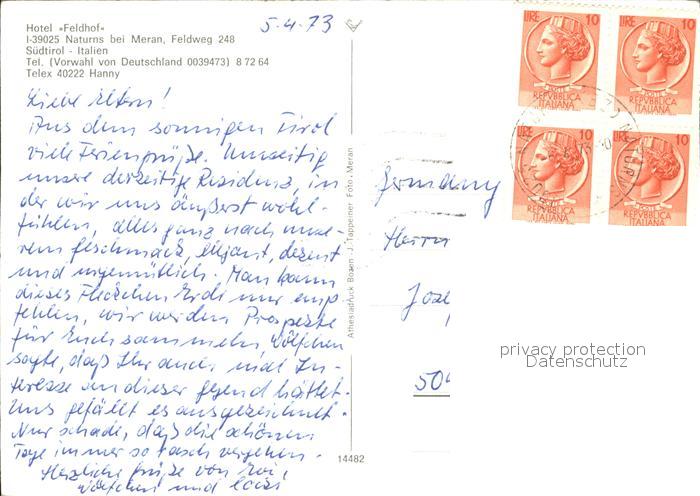 5.4.73
Hotel »Feldhof«
I-39025 Naturns bei Meran, Feldweg 248
Südtirol - Italien
Tel. (Vorwahl von Deutschland 0039473) 8 72 64
Telex 40222 Hanny
Liebe Eltern!
Aus dem sonnigen Tirol
viele Feriengrüße. Umseitig
unsere derzeitige Residenz, in
der wir uns äußerst wohl-
fühlen, alles ganz nach unse-
rem Geschmack, elegant, dezent
und urgemütlich. Man kann
dieses Fleckchen Erde nur emp
fehlen, wir werden Prospekte
für Euch sammeln, Wölfchen
sagte, daß Ihr auch mal In-
teresse an dieser Gegend hättet.
Uns gefällt es ausgezeichnet.
Nur schade, daß die schönen
Tage immer so rasch vergehen.
Herzliche Grüße von
Wölfchen und
Athesiadruck Bozen - J. Tappeiner Foto - Meran
14482
Germany
Herrn
Joze
504
LIRE 10
POSTE
REPVBBLICA
ITALIANA
LIRE 10
POSTE
REPVBBLICA
ITALIANA
LIRE 10
POSTE
REPVBBLICA
ITALIANA
LIRE 10
POSTE
REPVBBLICA
ITALIANA
privacy protection
Datenschutz